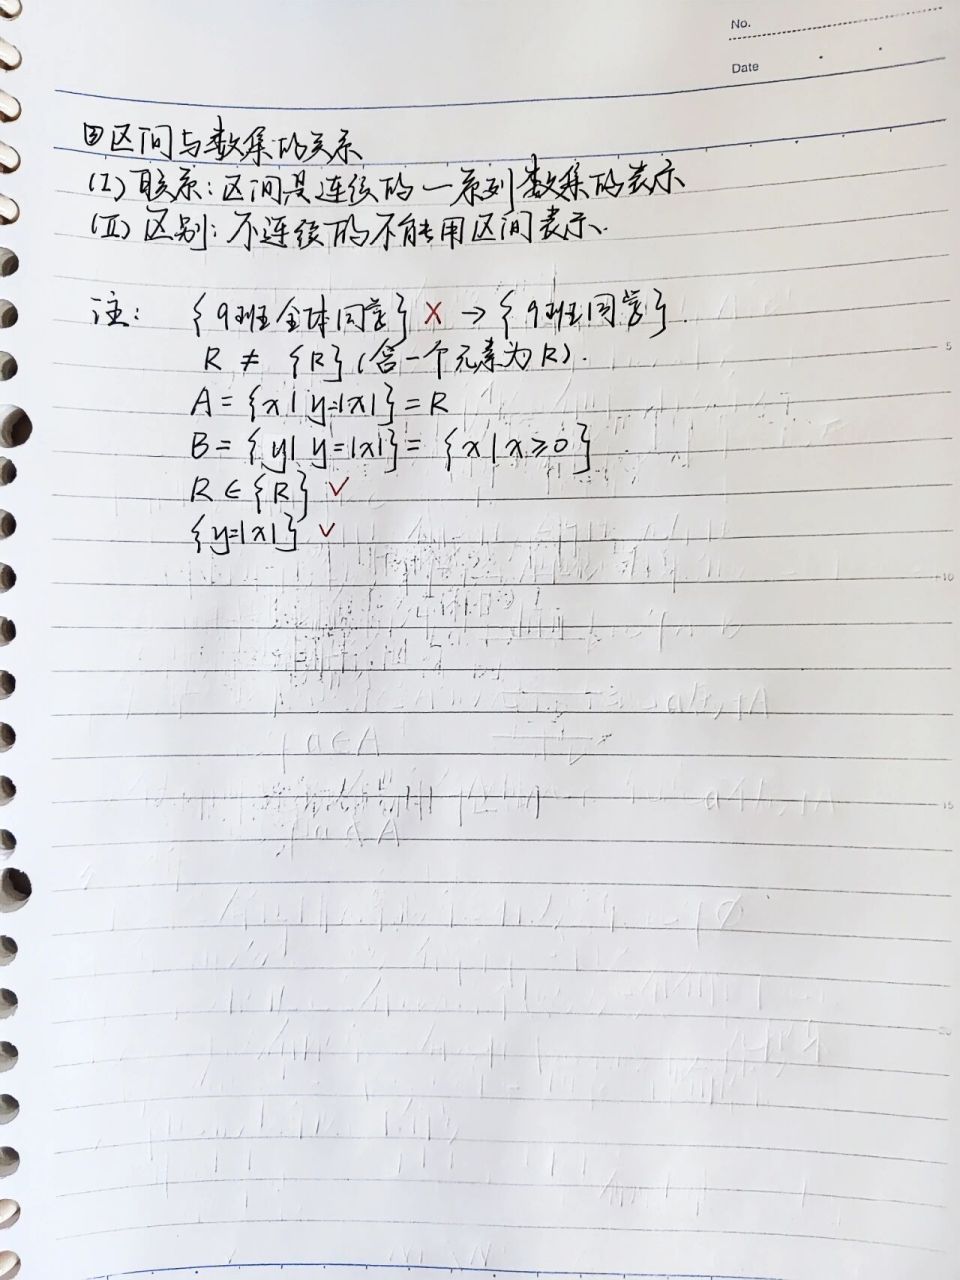 No.
Date
④区间与数集的关系
(I)联系:区间是连续的一系列数集的表示
(II)区别:不连续的不能用区间表示.
注: {9班全体同学} X → {9班同学}.
R ≠ {R}(含一个元素为R).
A={x|y=|x|}=R
B={y|y=|x|}={x|x≥0}
R∈{R} ✓
{y=|x|} ✓
5
10
15
20